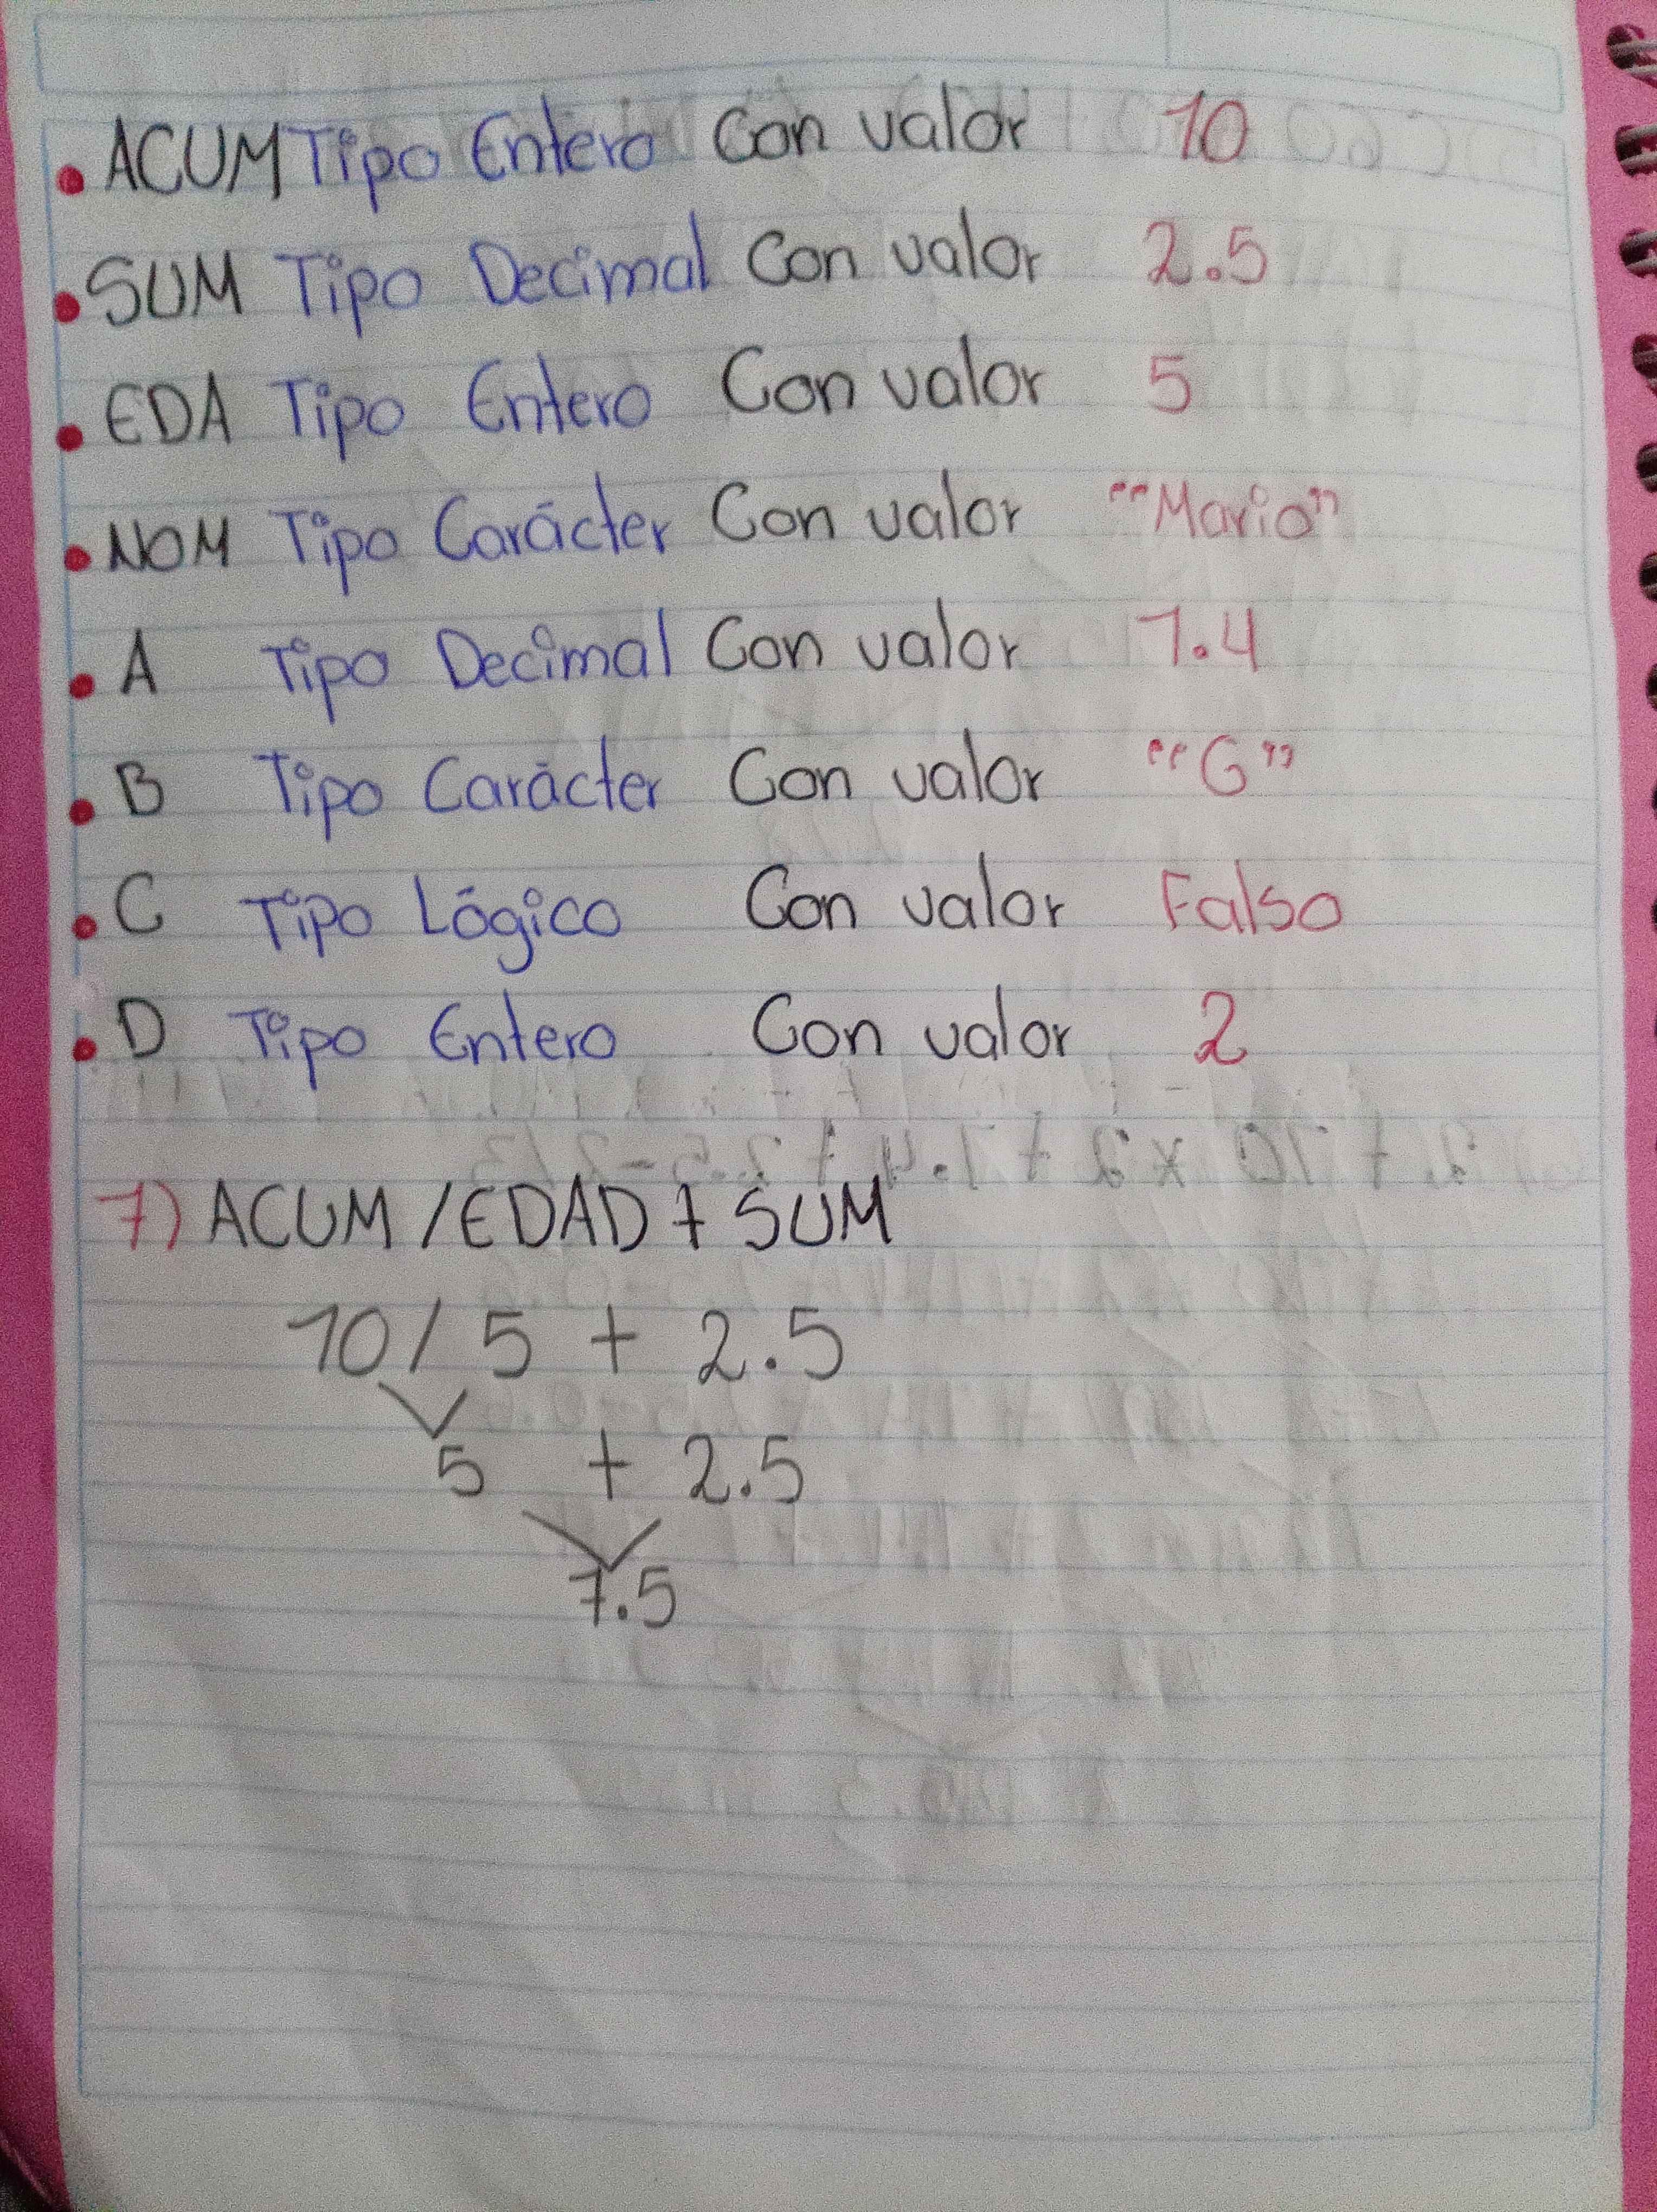 • ACUM Tipo Entero Con valor 10
• SUM Tipo Decimal Con valor 2.5
• EDA Tipo Entero Con valor 5
• NOM Tipo Carácter Con valor "Mario"
• A Tipo Decimal Con valor 1.4
• B Tipo Carácter Con valor "G"
• C Tipo Lógico Con valor Falso
• D Tipo Entero Con valor 2
7) ACUM / EDAD + SUM
10 / 5 + 2.5
5 + 2.5
7.5